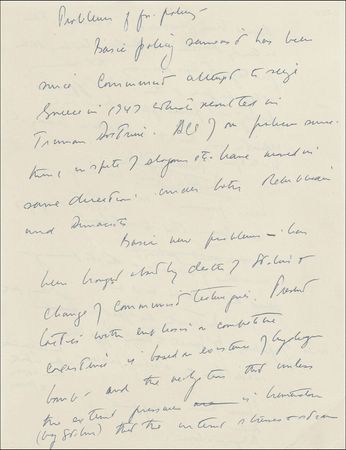 Problems of for. policy -
Basic policy has been
since Communist attempt to seize
Greece in 1947 which resulted in
Truman Doctrine. All of our policies since
then, in spite of slogans etc. have moved in
same direction under both Republicans
and Democrats
Basic new problem - has
been brought about by death of Stalin &
change of communist techniques. Present
tactics with emphasis on competitive
existence is based on existence of hydrogen
bomb - and the realization that unless
the external pressure is
(by Stalin) that the internal stresses &